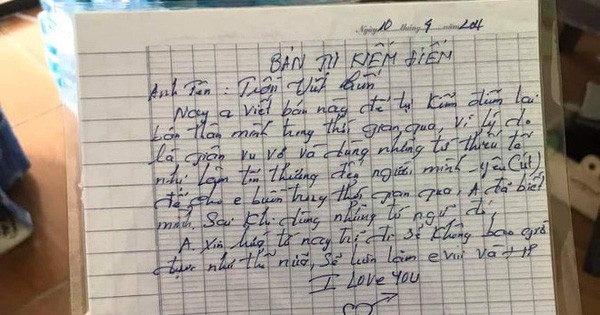 Ngày 10 tháng 9 năm 201
BẢN TỰ KIỂM ĐIỂM
Anh Tên : Trần Viết
Nay a viết bản này để tự kiểm điểm lại
bản thân mình trong thời gian qua, vì lý do
là giận vu vơ và dùng những từ thiếu tế
nhị làm tổn thương đến người mình yêu (út)
để cho e buồn trong thời gian qua, A đã biết
mình Sai khi dùng những từ ngữ đó
A. Xin hứa từ nay trở đi sẽ không bao giờ
được như thế nữa, Sẽ luôn làm e vui và + HP
I LOVE YOU